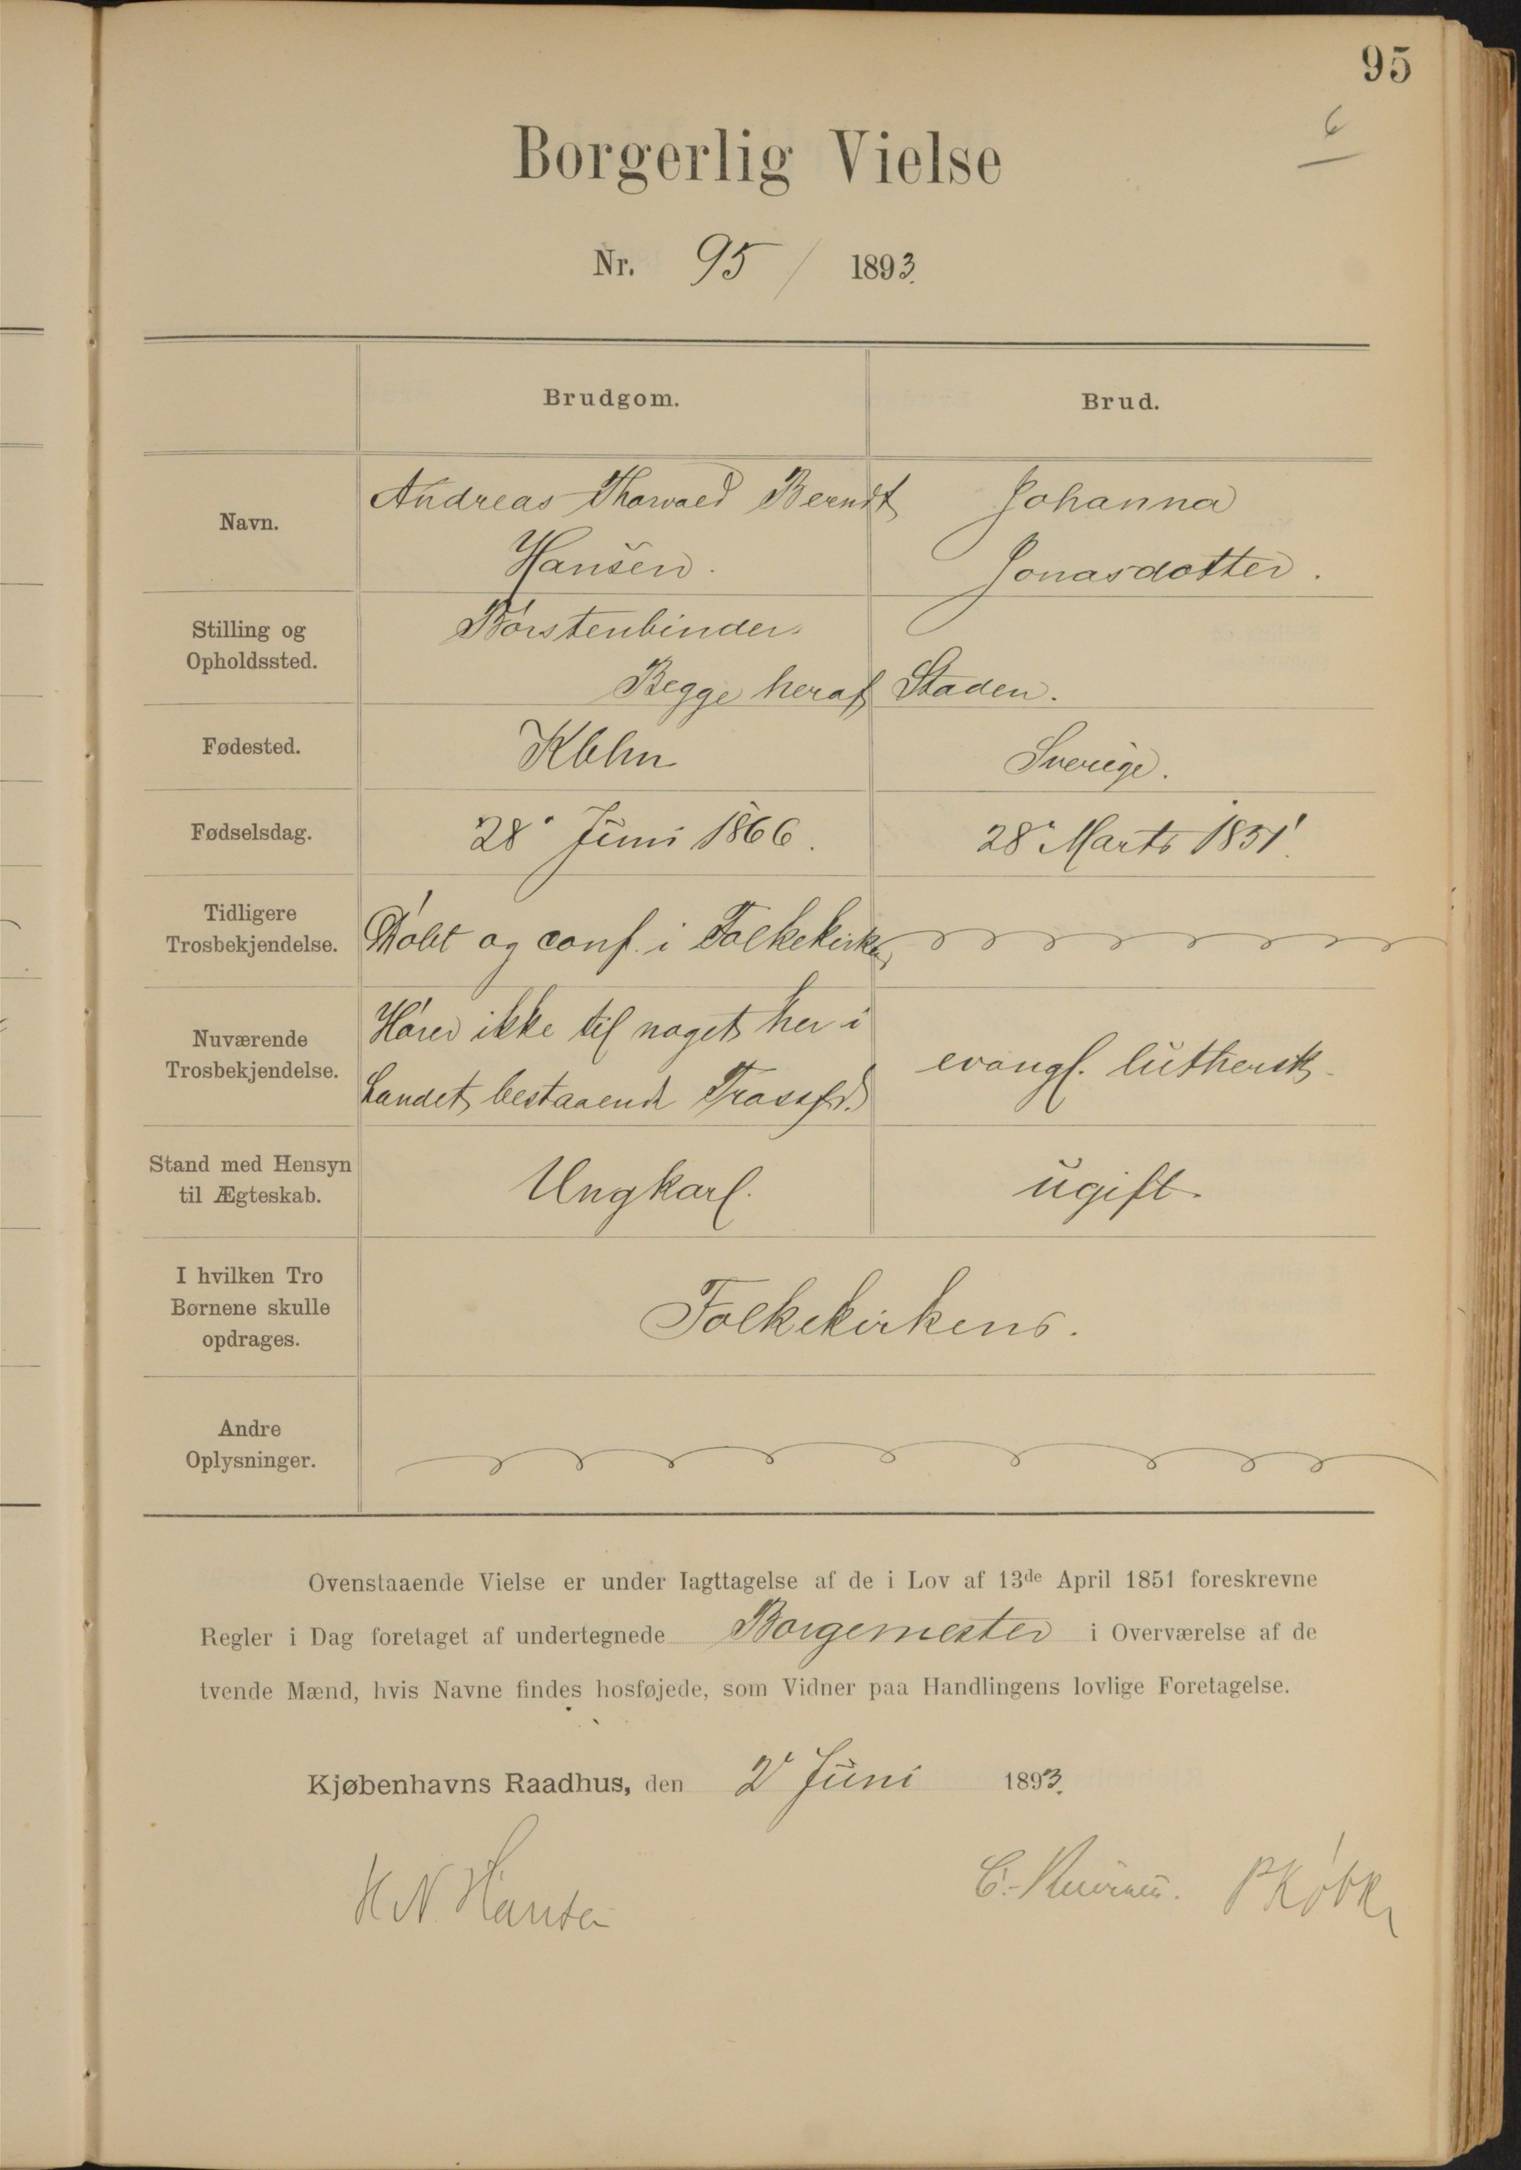 95
6
Borgerlig Vielse
Nr. 95 / 1893.
Brudgom. Brud.
Navn. Andreas Thorvald Berndt Johanna
Hansen. Jonasdotter.
Stilling og Opholdssted. Börstenbinder.
Begge heraf Staden.
Fødested. Kbhn Sverige.
Fødselsdag. 28' Juni 1866. 28' Marts 1851.
Tidligere
Trosbekjendelse. Döbt og conf. i Folkekirken
Nuværende
Trosbekjendelse. Hörer ikke til noget her i
Landet bestaaende Trossfd. evangl. luthersk.
Stand med Hensyn
til Ægteskab. Ungkarl. ugift.
I hvilken Tro
Børnene skulle
opdrages. Folkekirkens.
Andre
Oplysninger.
Ovenstaaende Vielse er under Iagttagelse af de i Lov af 13de April 1851 foreskrevne
Regler i Dag foretaget af undertegnede Borgemester i Overværelse af de
tvende Mænd, hvis Navne findes hosføjede, som Vidner paa Handlingens lovlige Foretagelse.
Kjøbenhavns Raadhus, den 2' Juni 1893.
H N Hansen
C.